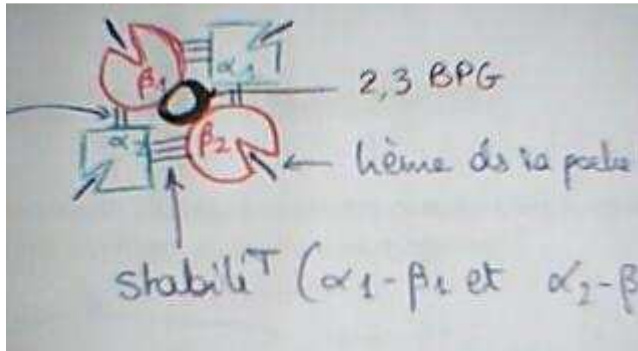 β1 α1
2,3 BPG
α2 β2
← hème ds sa poche
stabiliT (α1-β1 et α2-β